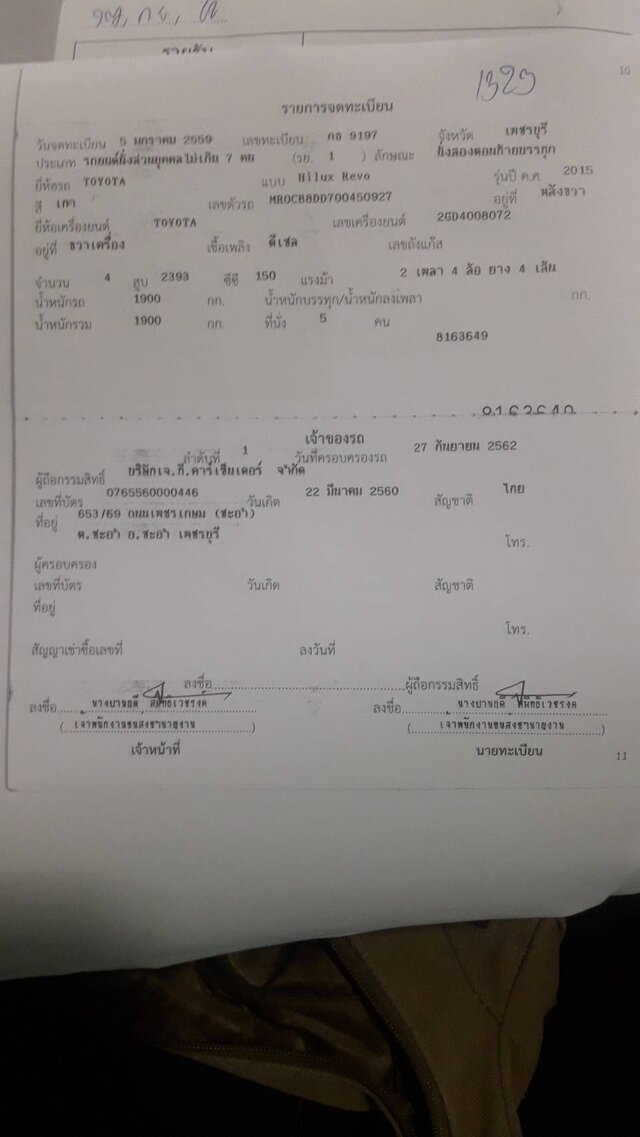 รายชื่อ
1329
10
รายการจดทะเบียน
วันจดทะเบียน 5 มกราคม 2559 เลขทะเบียน กอ 9197 จังหวัด เพชรบุรี
ประเภท รถยนต์นั่งส่วนบุคคลไม่เกิน 7 คน (รย. 1 ) ลักษณะ นั่งสองตอนท้ายบรรทุก
ยี่ห้อรถ TOYOTA แบบ Hilux Revo รุ่นปี ค.ศ. 2015
สี เทา เลขตัวรถ MR0CB8DD700450927 อยู่ที่ หลังขวา
ยี่ห้อเครื่องยนต์ TOYOTA เลขเครื่องยนต์ 2GD4008072
อยู่ที่ ขวาเครื่อง เชื้อเพลิง ดีเซล เลขถังแก๊ส
จำนวน 4 สูบ 2393 ซีซี 150 แรงม้า 2 เพลา 4 ล้อ ยาง 4 เส้น
น้ำหนักรถ 1900 กก. น้ำหนักบรรทุก/น้ำหนักลงเพลา กก.
น้ำหนักรวม 1900 กก. ที่นั่ง 5 คน
8163649
เจ้าของรถ
ลำดับที่ 1 วันที่ครอบครองรถ 27 กันยายน 2562
ผู้ถือกรรมสิทธิ์ บริษัทเจ.ที.คาร์เซ็นเตอร์ จำกัด
เลขที่บัตร 0765560000446 วันเกิด 22 มีนาคม 2560 สัญชาติ ไทย
ที่อยู่ 653/69 ถนนเพชรเกษม (ชะอำ)
ต.ชะอำ อ.ชะอำ เพชรบุรี
โทร.
ผู้ครอบครอง
เลขที่บัตร วันเกิด สัญชาติ
ที่อยู่
โทร.
สัญญาเช่าซื้อเลขที่ ลงวันที่
ลงชื่อ ผู้ถือกรรมสิทธิ์
ลงชื่อ ลงชื่อ
(เจ้าพนักงานขนส่งชำนาญงาน) (เจ้าพนักงานขนส่งชำนาญงาน)
เจ้าหน้าที่ นายทะเบียน
11